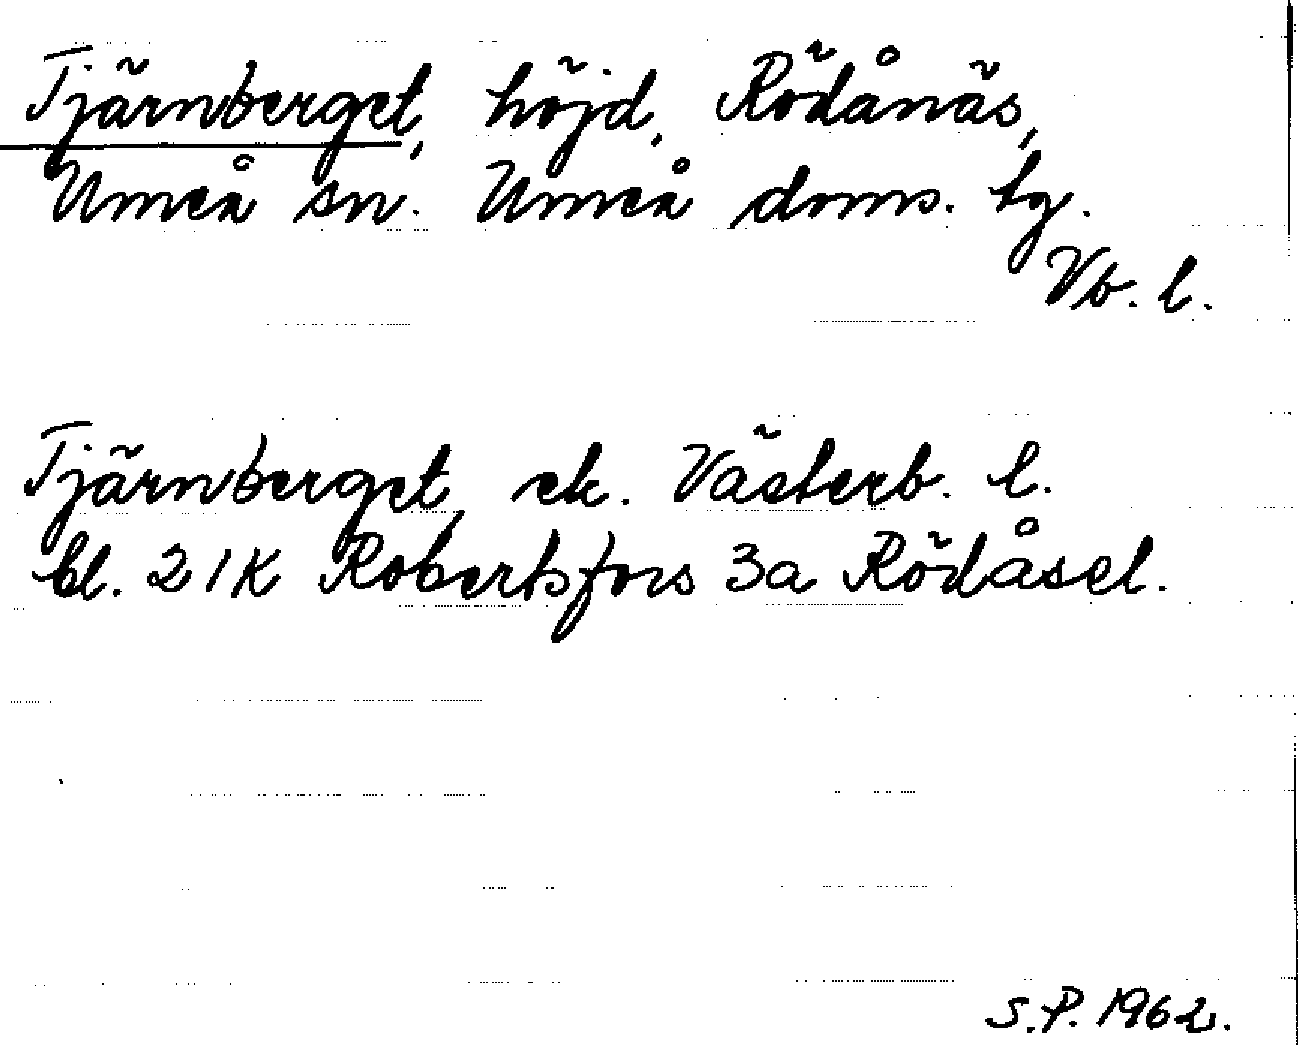 Tjärnberget, höjd, Rödånäs,
Umeå sn. Umeå doms. tg.
Vb. l.
Tjärnberget, ek. Västerb. l.
bl. 21K Robertsfors 3a Rödåsel.
S.P. 1962.